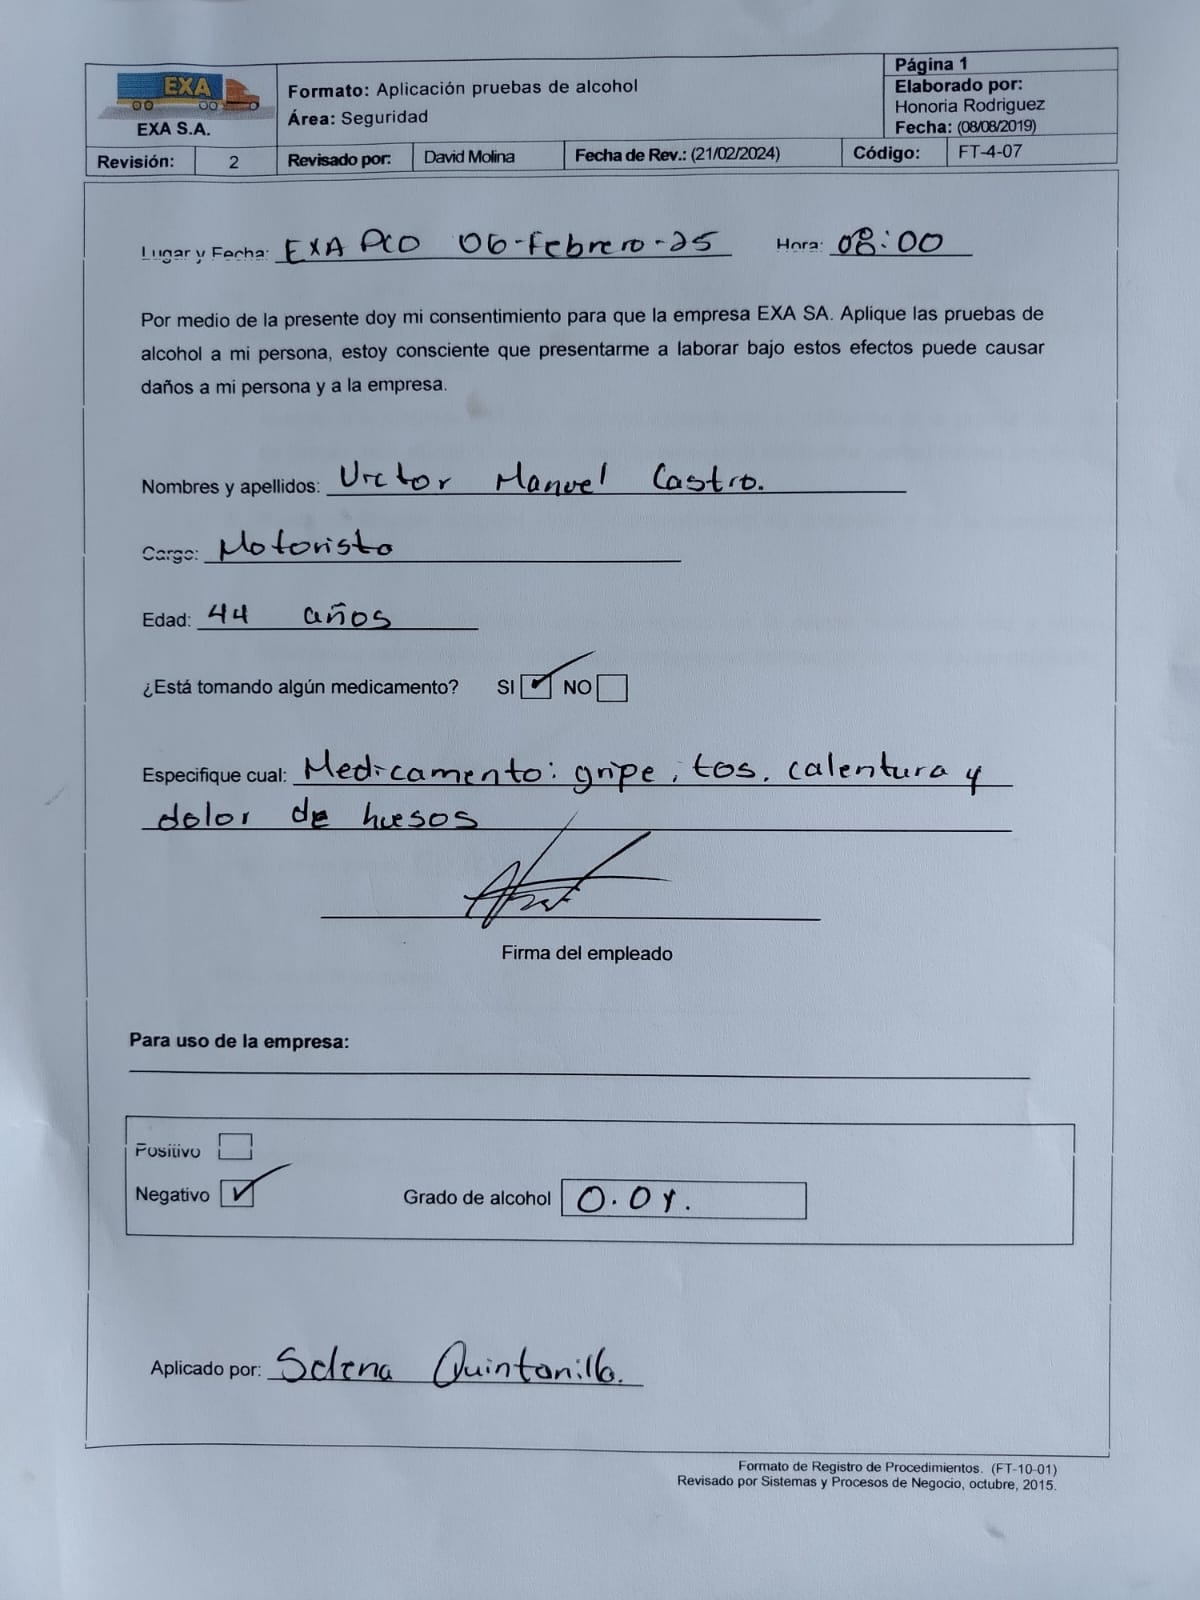 EXA
EXA S.A.
Formato: Aplicación pruebas de alcohol
Área: Seguridad
Página 1
Elaborado por:
Honoria Rodriguez
Fecha: (08/08/2019)
Revisión: 2 Revisado por: David Molina Fecha de Rev.: (21/02/2024) Código: FT-4-07
Lugar y Fecha: EXA PCO 06-Febrero-25 Hora: 08:00
Por medio de la presente doy mi consentimiento para que la empresa EXA SA. Aplique las pruebas de
alcohol a mi persona, estoy consciente que presentarme a laborar bajo estos efectos puede causar
daños a mi persona y a la empresa.
Nombres y apellidos: Victor Manuel Castro.
Cargo: Motorista
Edad: 44 años
¿Está tomando algún medicamento? SI ✓ NO
Especifique cual: Medicamento: gripe, tos, calentura y
dolor de huesos
Firma del empleado
Para uso de la empresa:
Positivo
Negativo ✓ Grado de alcohol 0.0%.
Aplicado por: Selena Quintanilla.
Formato de Registro de Procedimientos. (FT-10-01)
Revisado por Sistemas y Procesos de Negocio, octubre, 2015.